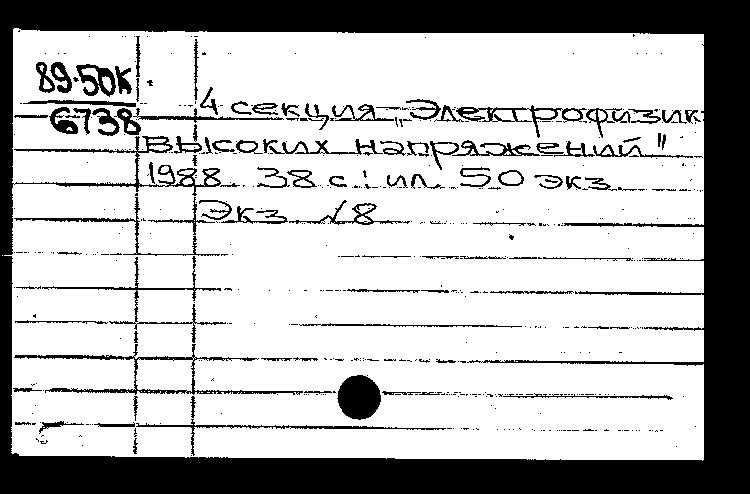 89-50К
6738
4 секция „Электрофизик
высоких напряжений"
1988. 38 с.: ил. 50 экз.
Экз №8